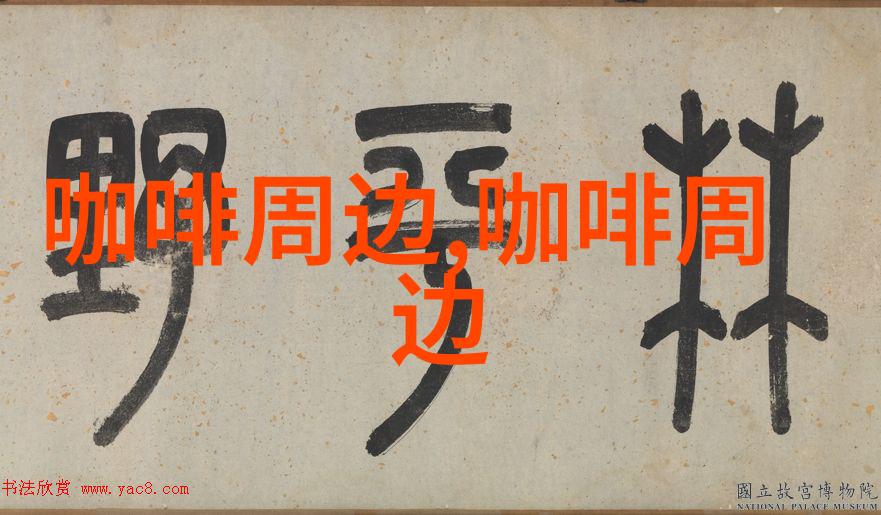 林 野
咖啡周边,咖啡周
边
书法欣赏 www.yac8.com
國立故宮博物院
NATIONAL PALACE MUSEUM